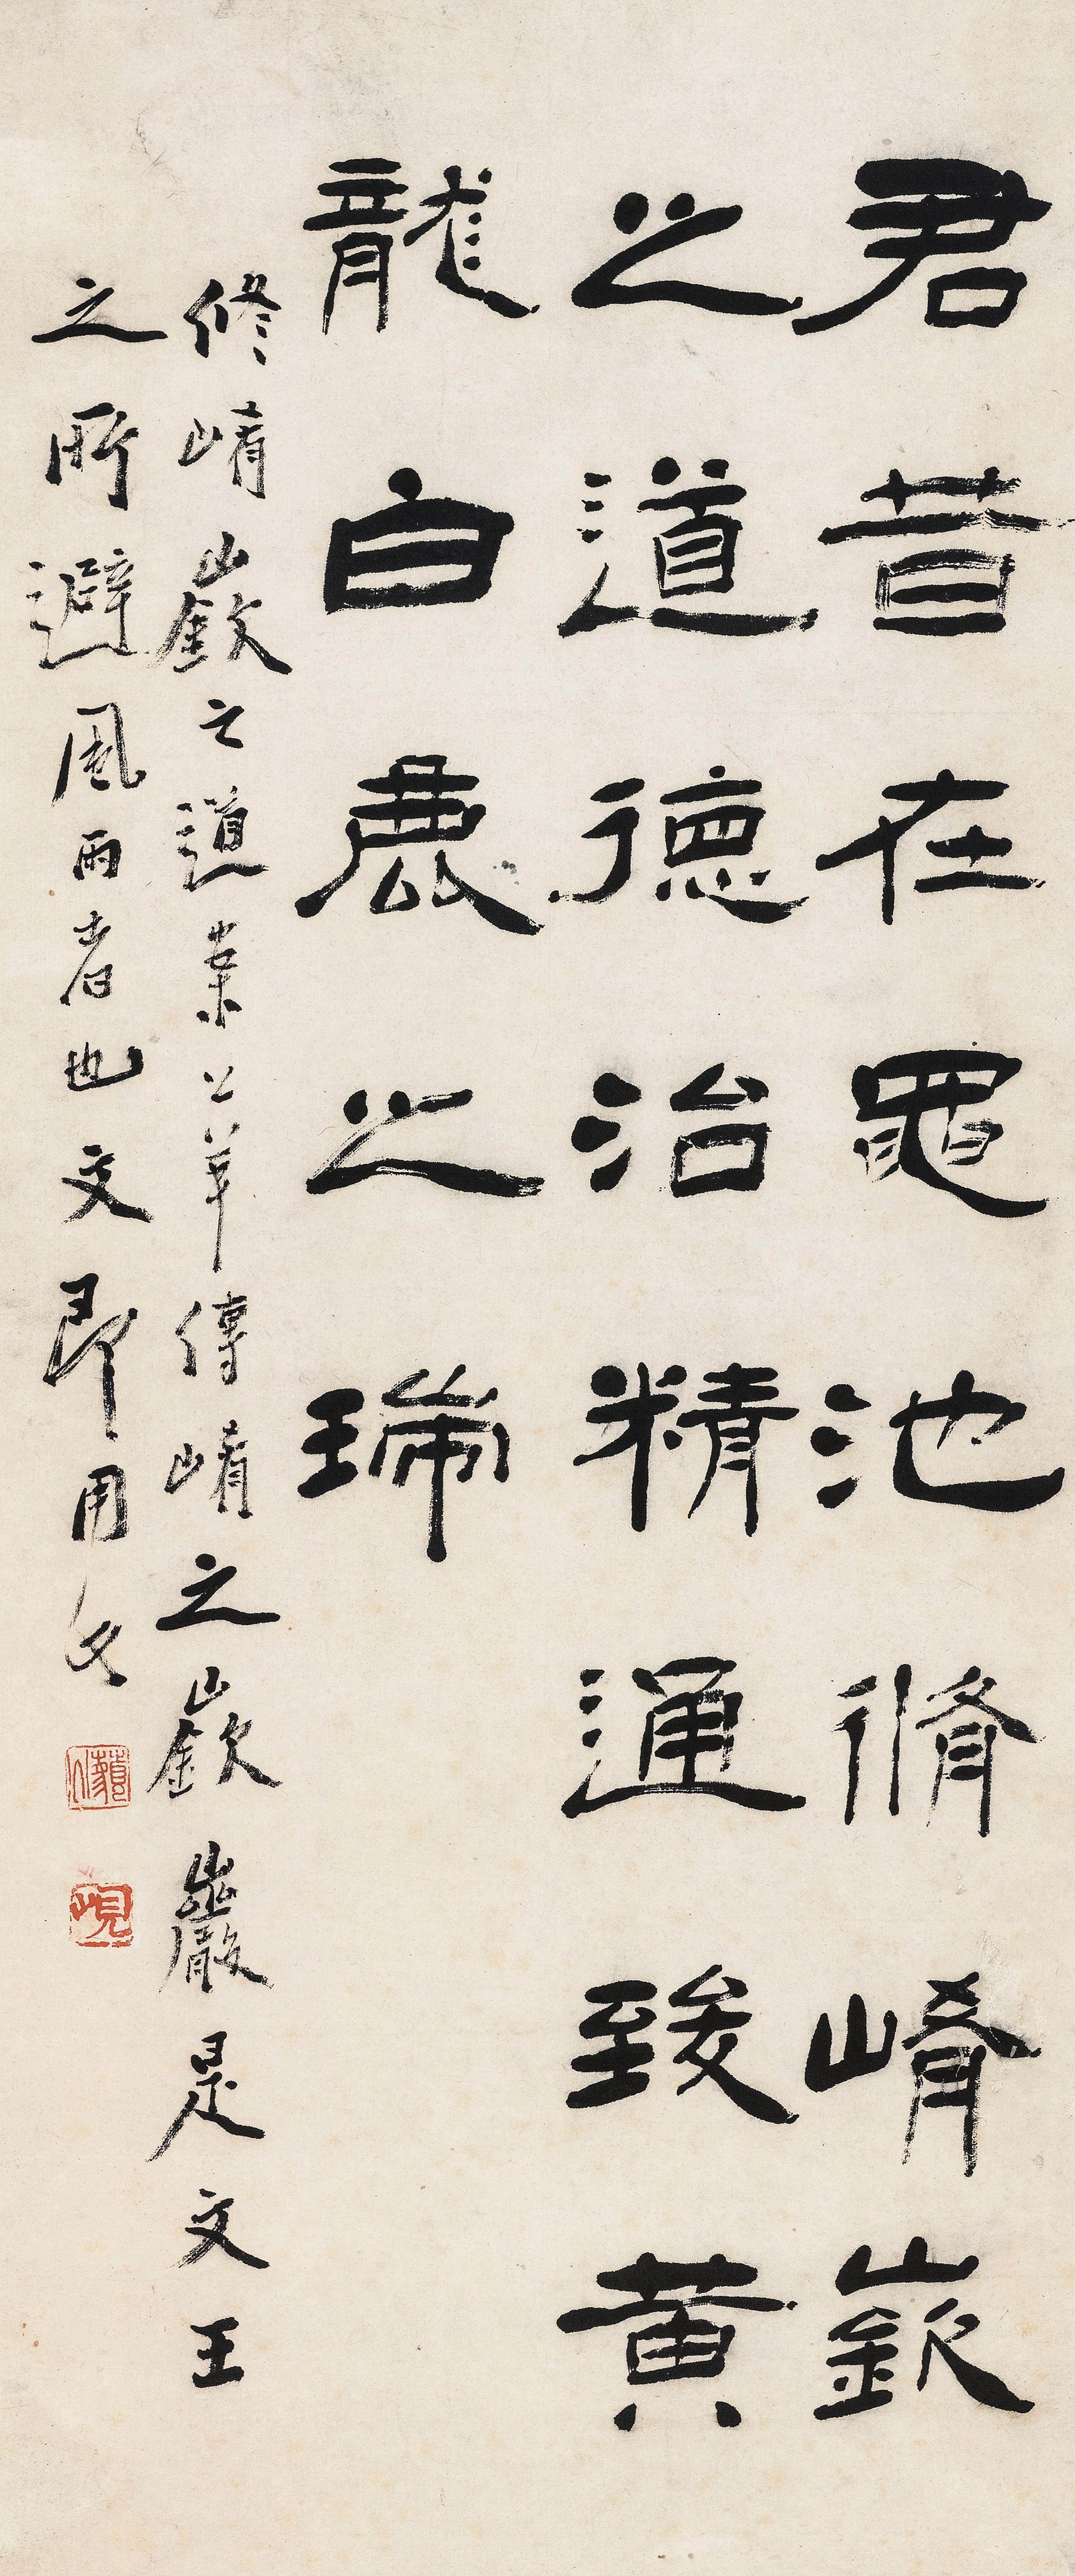 君昔在黽池脩崤嶔
之道德治精通致黃
龍白鹿之瑞
修崤嶔之道案公羊傳崤之嶔巖是文王
之所避風雨者也文即用文
峴